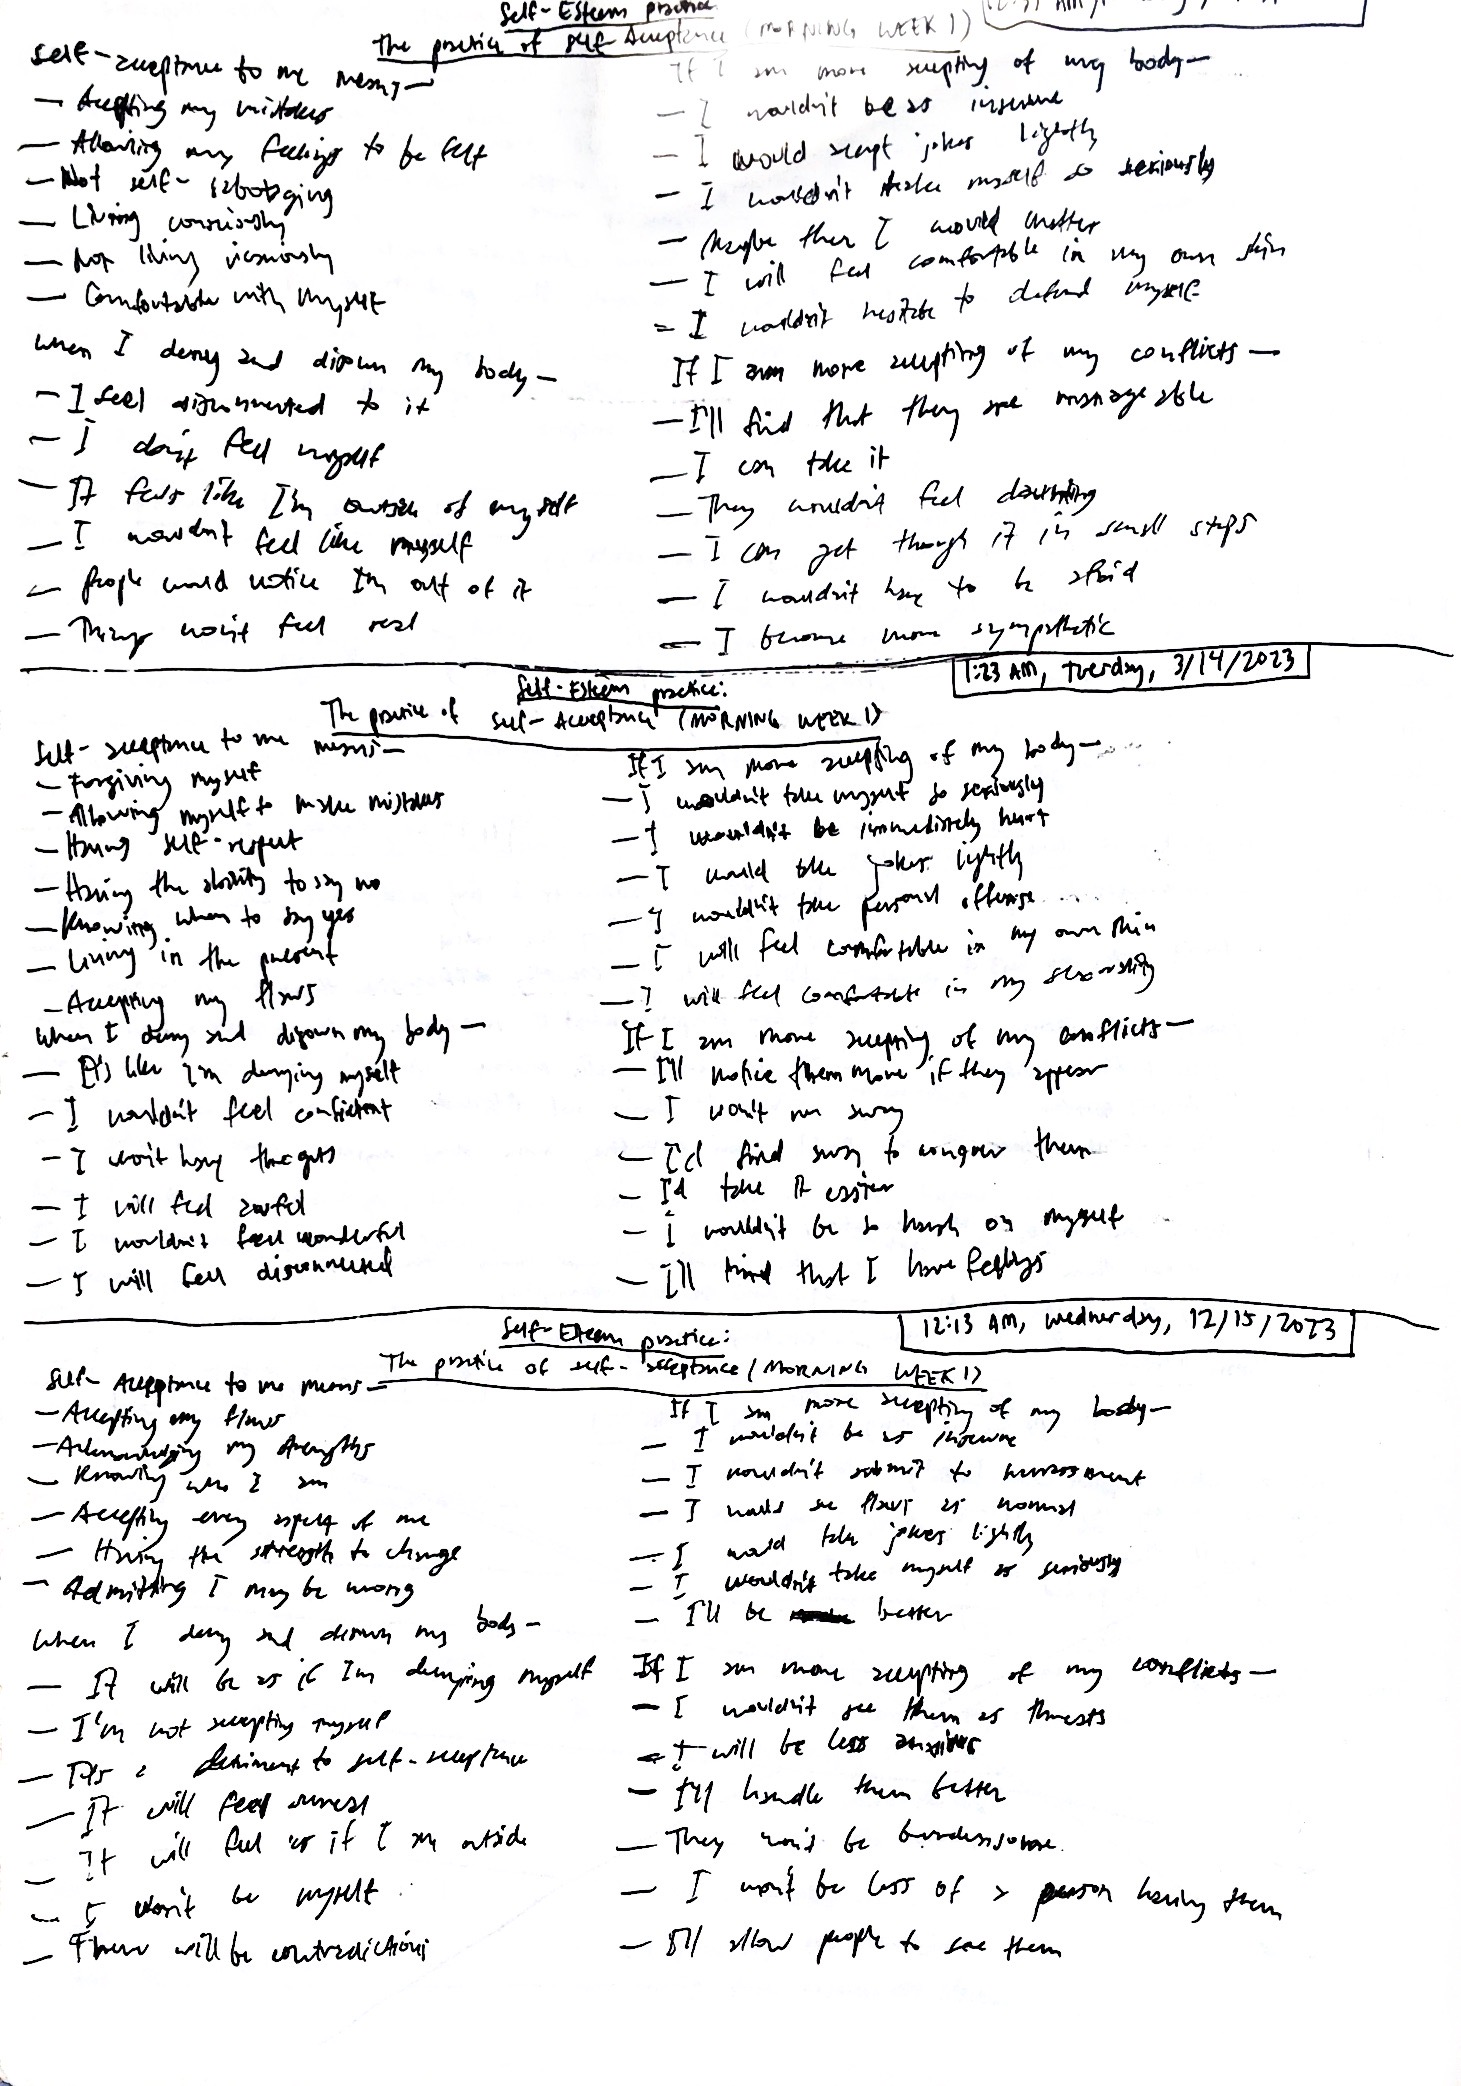 Self-Esteem practice
The practice of Self-Acceptance (MORNING WEEK 1)
Self-acceptance to me means—
— Accepting my mistakes
— Allowing my feelings to be felt
— Not self-sabotaging
— Living consciously
— Not living viciously
— Comfortable with myself
When I deny and disown my body—
— I feel disconnected to it
— I don't feel myself
— It feels like I'm outside of myself
— I wouldn't feel like myself
— People would notice I'm out of it
— Things won't feel real
If I am more accepting of my body—
— I wouldn't be as insecure
— I would accept jokes lightly
— I wouldn't take myself so seriously
— Maybe then I would matter
— I will feel comfortable in my own skin
— I wouldn't hesitate to defend myself
If I am more accepting of my conflicts—
— I'll find that they are manageable
— I can take it
— They wouldn't feel daunting
— I can get though it in small steps
— I wouldn't have to be afraid
— I become more sympathetic
1:23 AM, Tuesday, 3/14/2023
Self-Esteem practice:
The practice of Self-Acceptance (MORNING WEEK 1)
Self-acceptance to me means—
— Forgiving myself
— Allowing myself to make mistakes
— Having self-respect
— Having the ability to say no
— Knowing when to say yes
— Living in the present
— Accepting my flaws
When I deny and disown my body—
— It's like I'm denying myself
— I wouldn't feel confident
— I won't have the guts
— I will feel awful
— I wouldn't feel wonderful
— I will feel disconnected
If I am more accepting of my body—
— I wouldn't take myself so seriously
— I wouldn't be immediately hurt
— I would take jokes lightly
— I wouldn't take personal offense
— I will feel comfortable in my own skin
— I will feel comfortable in my sexuality
If I am more accepting of my conflicts—
— I'll notice them more if they appear
— I won't run away
— I'd find away to conquer them
— I'd take it easier
— I wouldn't be so harsh on myself
— I'll find that I have feelings
12:13 AM, Wednesday, 12/15/2023
Self-Esteem practice:
The practice of self-acceptance (MORNING WEEK 1)
Self-Acceptance to me means—
— Accepting my flaws
— Acknowledging my strengths
— Knowing who I am
— Accepting every aspect of me
— Having the strength to change
— Admitting I may be wrong
When I deny and disown my body—
— It will be as if I'm denying myself
— I'm not accepting myself
— It's a detriment to self-acceptance
— It will feel unreal
— It will feel as if I am outside
— I won't be myself
— There will be contradictions
If I am more accepting of my body—
— I wouldn't be as insecure
— I wouldn't submit to harassment
— I would see flaws as normal
— I would take jokes lightly
— I wouldn't take myself as seriously
— I'll be better
If I am more accepting of my conflicts—
— I wouldn't see them as threats
— I will be less anxious
— I'll handle them better
— They won't be burdensome
— I won't be less of a person having them
— I'll allow people to see them